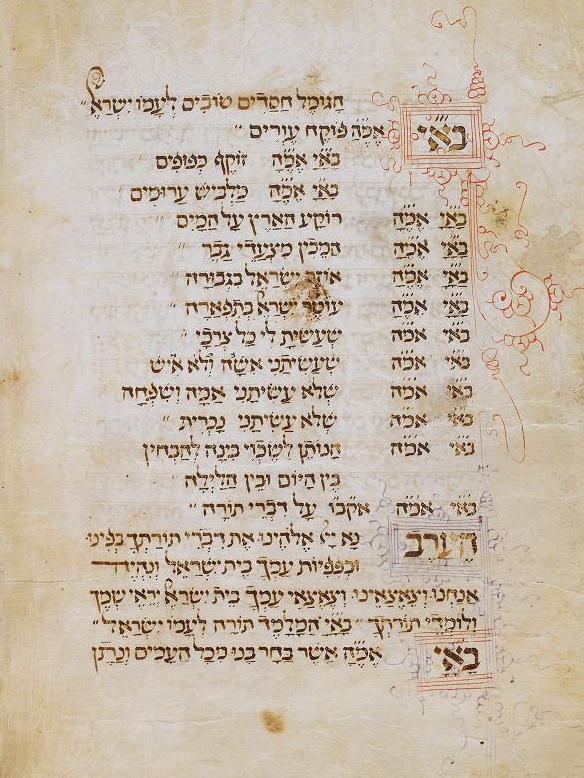 הגומל חסדים טובים לעמו ישרא״
בא״י אמ״ה פוקח עורים ״
בא״י אמ״ה זוקף כפופים
בא״י אמ״ה מלביש ערומים
בא״י אמ״ה רוקע הארץ על המים
בא״י אמ״ה המכין מצעדי גבר
בא״י אמ״ה אוזר ישראל בגבורה
בא״י אמ״ה עוטר ישרא׳ בתפארה
בא״י אמ״ה שעשית לי כל צרכי
בא״י אמ״ה שעשיתני אשה ולא איש
בא״י אמ״ה שלא עשיתני אמה ושפחה
בא״י אמ״ה שלא עשיתני נכרית
בא״י אמ״ה הנותן לשכוי בינה להבחין
בין היום ובין הלילה ״
בא״י אמ״ה אקבו׳ על דברי תורה ״
הערב נא אלהינו את דברי תורתך בפינו
ובפפיות עמך בית ישראל
אנחנו וצאצאינו וצאצאי עמך בית ישרא׳ יראי שמך
ולומדי תורתך בא״י המלמד תורה לעמו ישראל ״
בא״י אמ״ה אשר בחר בנו מכל העמים ונתן